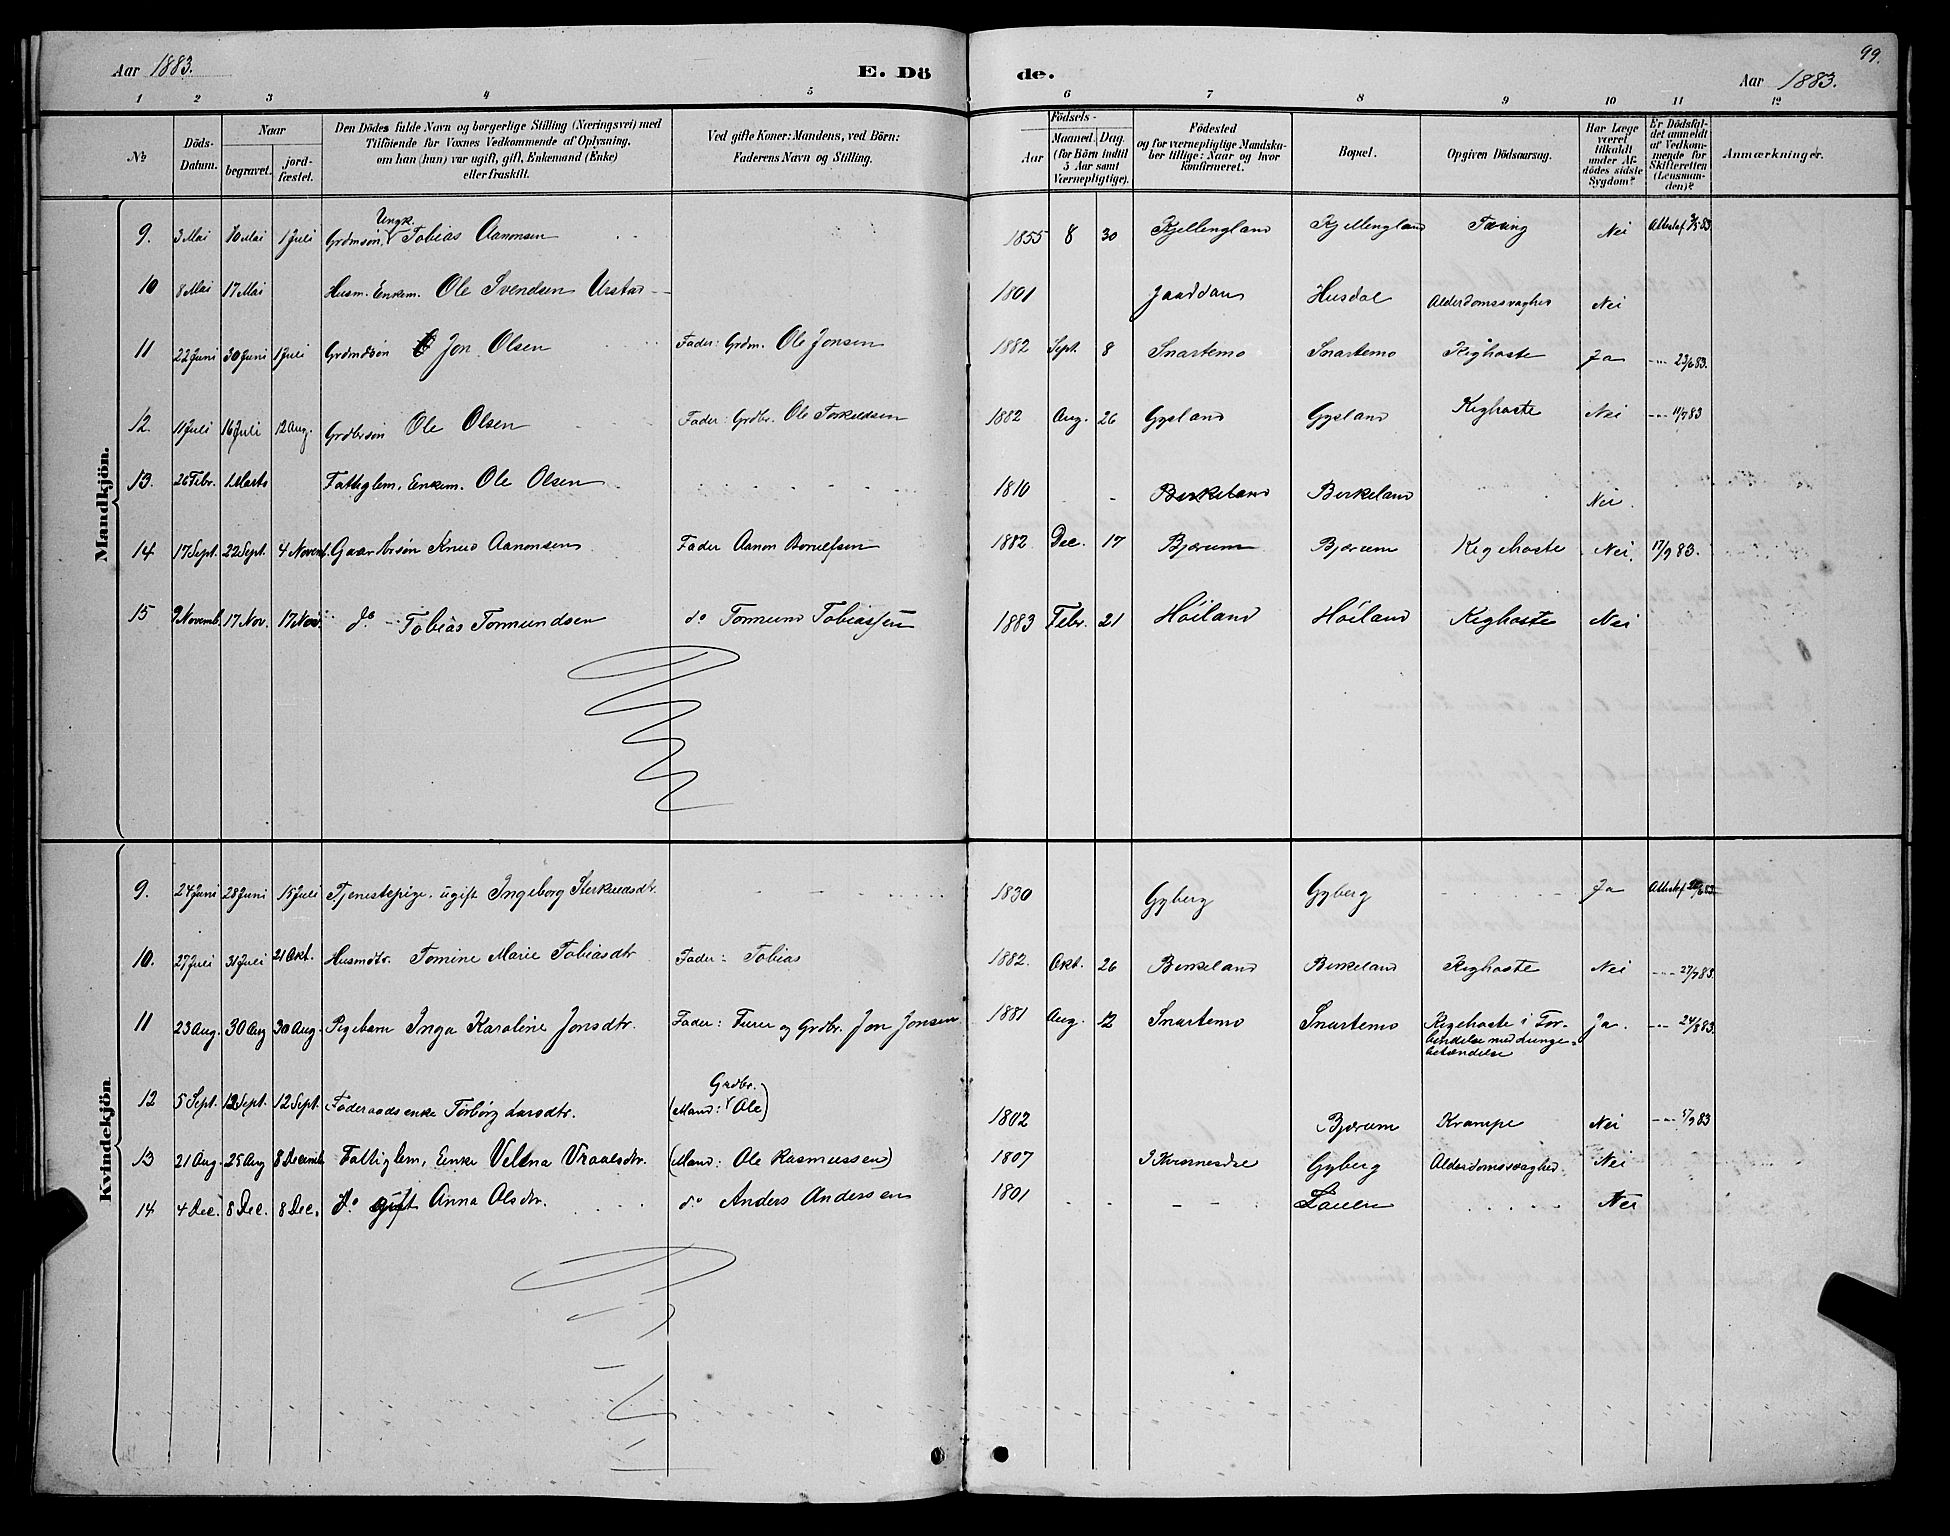 Aar 1883.
E. Dö
de.
Aar 1883.
99.
1 2 3 4 5 6 7 8 9 10 11 12
No
Döds-Datum.
Naar
begravet.
jord-fæstet.
Den Dödes fulde Navn og borgerlige Stilling (Næringsvei) med
Tilföiende for Voxnes Vedkommende af Oplysning,
om han (hun) var ugift, gift, Enkemand (Enke)
eller fraskilt.
Ved gifte Koner: Mandens, ved Börn:
Faderens Navn og Stilling.
Födsels-
Aar
Maaned. Dag.
(for Börn indtil
5 Aar samt
Værnepligtige).
Födested
og for værnepligtige Mandska-
ber tillige: Naar og hvor
konfirmeret.
Bopæl.
Opgiven Dödsaarsag.
Har Læge
været
tilkaldt
under Af-
dödes sidste
Sygdom?
Er Dödsfal-
det anmeldt
af Vedkom-
mende for
Skifteretten
(Lensman-
den)?
Anmærkninger.
Mandkjön.
Ungk.
9. 3 Mai 10 Mai 1 Juli Grdmsön, Tobias Aanensen 1855 8 30 Kjellingland Kjellingland Tæring Nei Attestaf 3/5 83
10 8 Mai 17 Mai Husm. Enkem. Ole Svendsen Urstad 1801 Jaaddan Husdal Alderdomssvaghed Nei
11 22 Juni 30 Juni 1 Juli Grdmdsön Jon Olsen Fader: Grdm. Ole Jonsen 1882 Sept. 8 Snartemo Snartemo Kighoste Ja 23/6 83.
12. 11 Juli 16 Juli 12 Aug. Grdbrsön Ole Olsen Fader: Grdbr. Ole Torkeldsen 1882 Aug. 26 Gysland Gysland Kighoste Nei 11/7 83
13. 26 Febr. 1 Marts Fattiglem, Enkem. Ole Olsen 1810 Birkeland Birkeland Nei.
14 17 Sept. 22 Sept. 4 Novemb. Gaardbrsön Knud Aanonsen Fader Aanon 1882 Dec. 17 Bjærum Bjærum Kigehoste Nei. 17/9 83.
15 9 Novemb. 17 Nov. 17 Nov. do Tobias Tormundsen do Tormund Tobiassen 1883 Febr. 21 Höiland Höiland Kighoste Nei
Kvindekjön
9. 24 Juni 28 Juni 15 Juli Tjenestepige, ugift Ingeborg Sterkuedsdtr. 1830 Gyberg Gyberg Ja Attestaf 26/6 83
10. 27 Juli 31 Juli 21 Okt. Husmdtr. Tomine Marie Tobiasdtr Fader: Tobias 1882. Okt. 26 Birkeland Birkeland Kighoste Nei 27/7 83
11 23 Aug. 30 Aug 30 Aug. Pigebarn Inga Karoline Jonsdtr. Fader: Furer og Grdbr. Jon Jonsen 1881 Aug. 12 Snartemo Snartemo Kigehoste i For-
bindelse med Lunge-
betændelse Ja. 24/8 83.
Grdbr.
12 5 Sept. 12 Sept. 12 Sept. Föderaadsenke Torborg Larsdtr. (Mand: Ole) 1802 Bjærum Krampe Nei 5/9 83
13 21 Aug. 25 Aug 8 Decemb. Fattiglem, Enke Velena Vraalsdtr. (Mand: Ole Rasmussen) 1807 I Kvinesdal Gyberg Alderdomssvaghed. Nei
14 4 Dec. 8 Dec. 8 Dec. do gift Anna Olsdtr. do Anders Andersen 1801 Lauen Nei